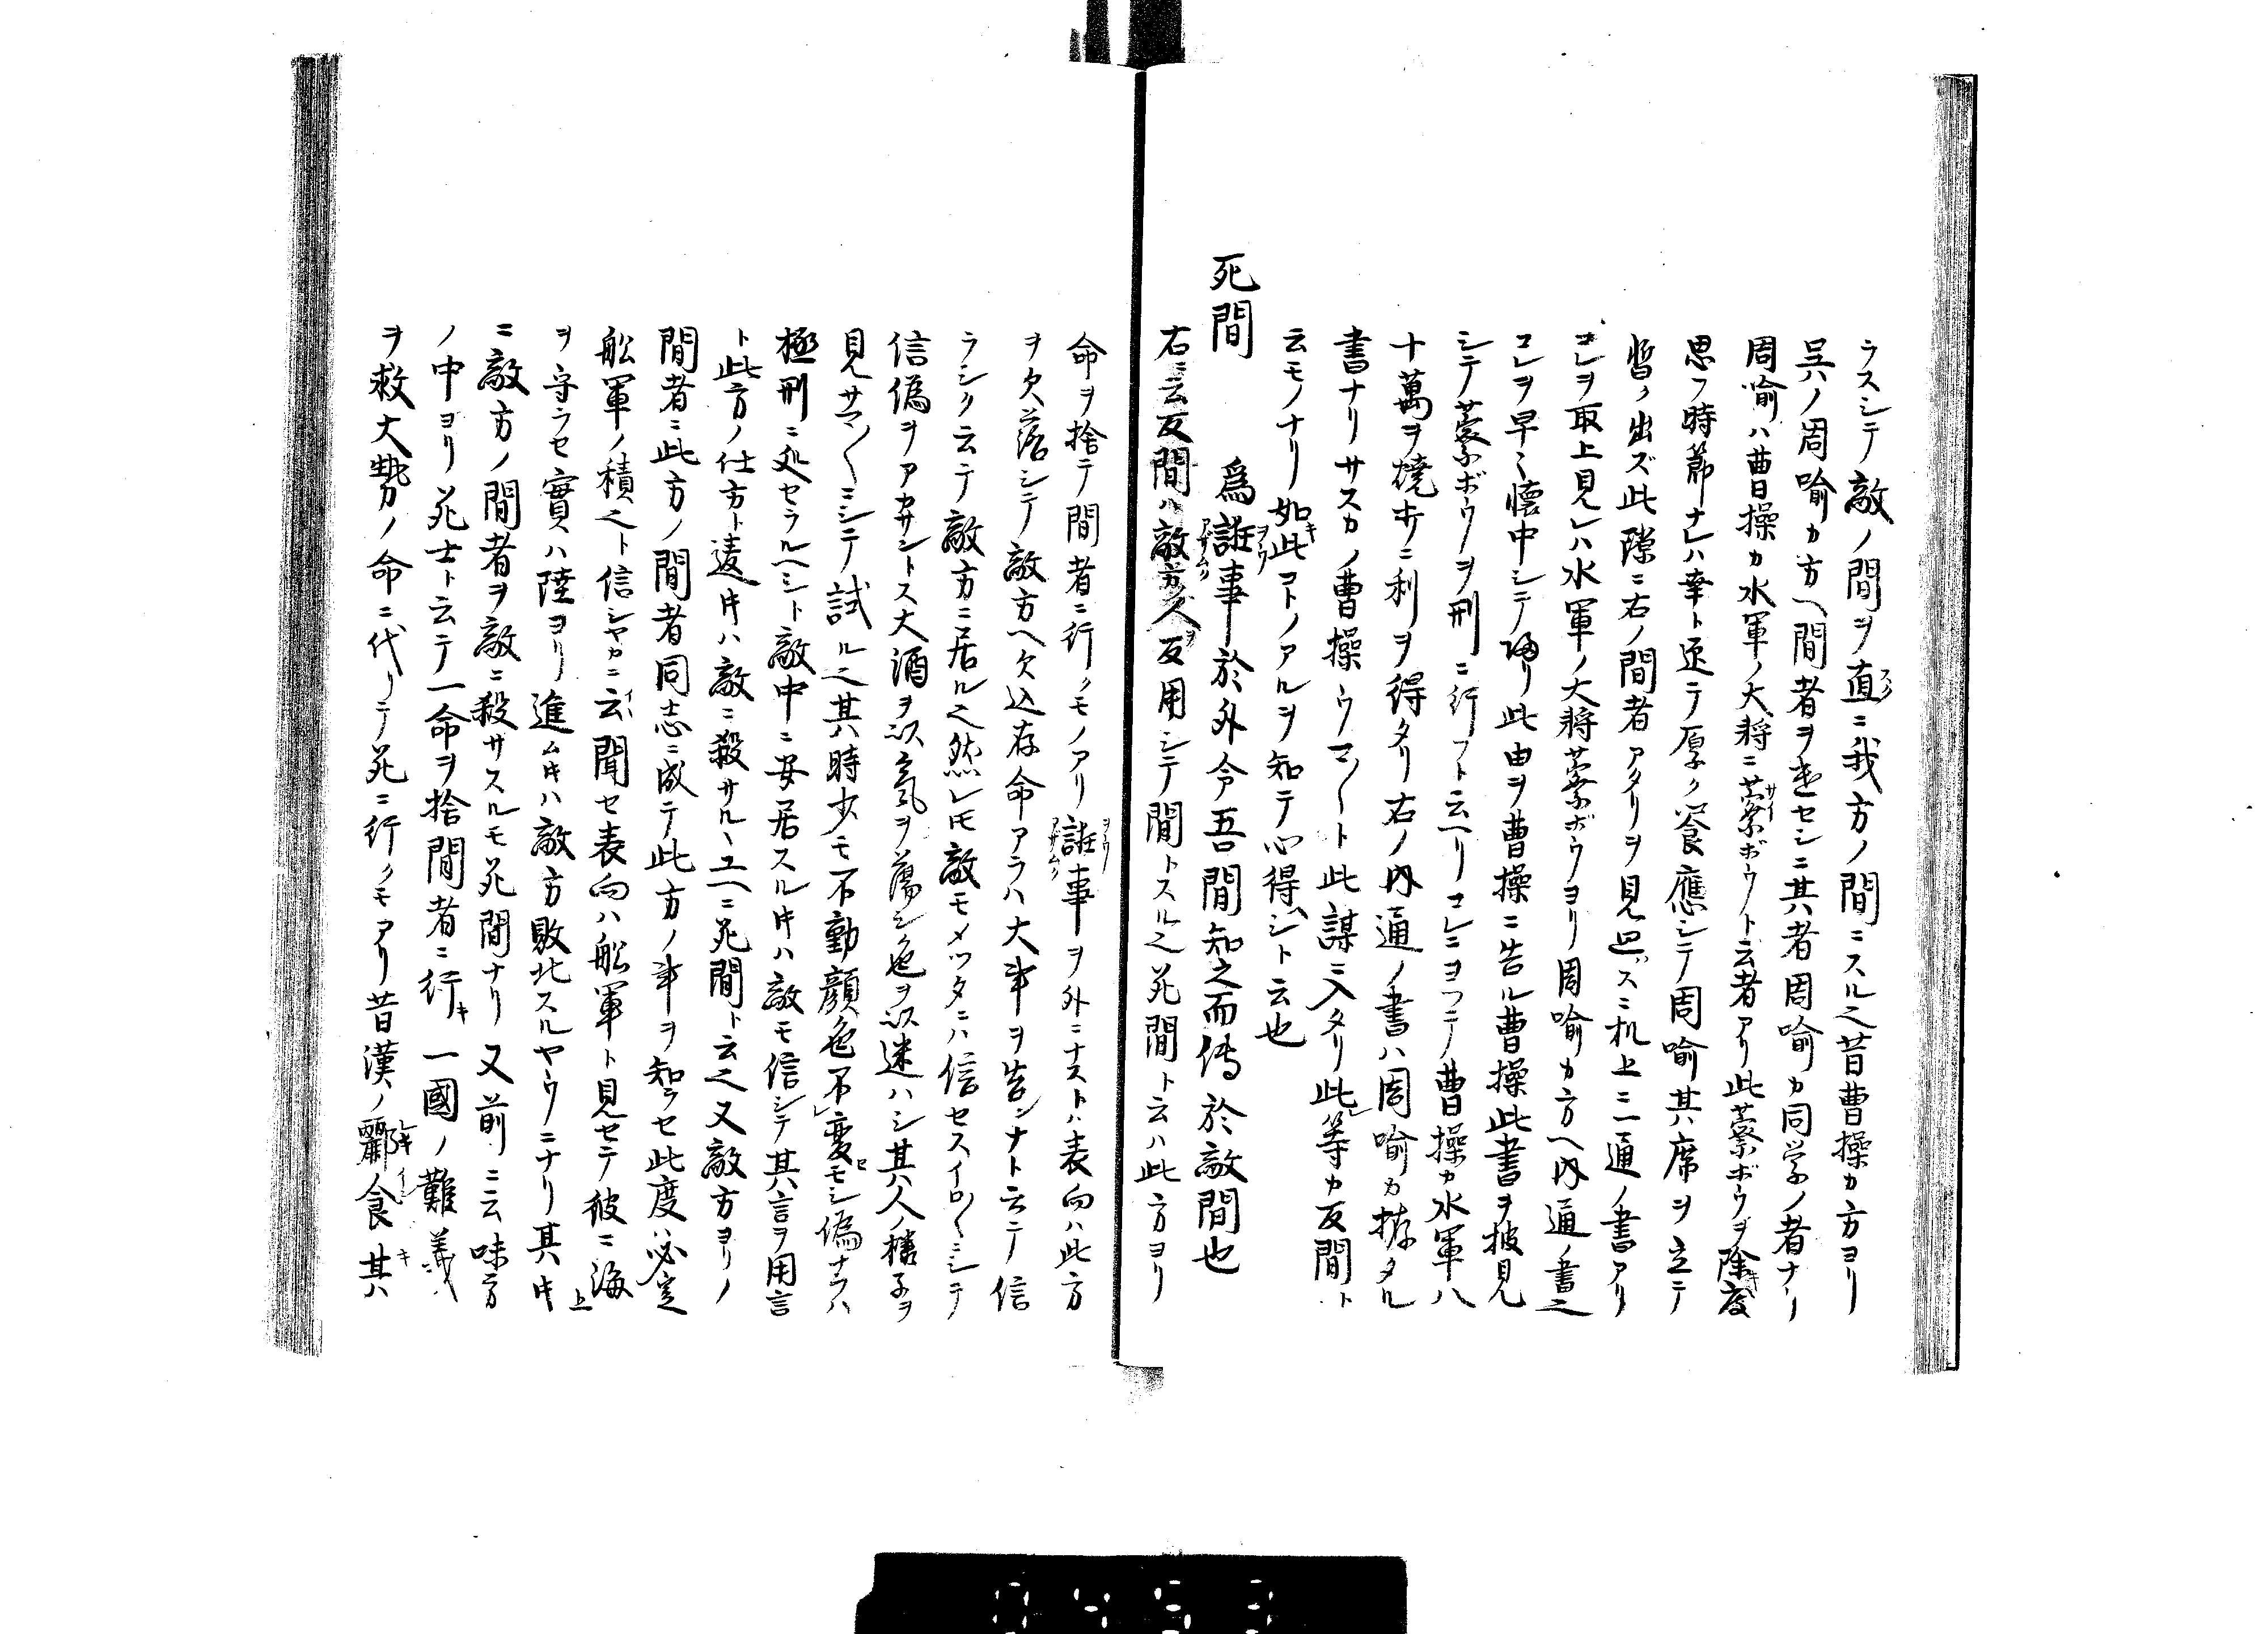 ラスシテ敵ノ間ヲ直ニ我方ノ間ニスル也昔曹操カ方ヨリ
呉ノ周喩カ方ヘ間者ヲ遣セシニ其者周喩カ同学ノ者ナリ
周喩ハ曹操カ水軍ノ大将ニ蔡ボウト云者アリ此蔡ボウヲ除キ度
思フ時節ナレハ幸ト迎テ厚ク饗應シテ周喩其席ヲ立テ
暫ク出ズ此隙ニ右ノ間者アタリヲ見廻スニ机上ニ一通ノ書アリ
コレヲ取上見レハ水軍ノ大将蔡ボウヨリ周喩カ方ヘ内通ノ書也
コレヲ早々懐中シテ帰リ此由ヲ曹操ニ告ル曹操此書ヲ披見
シテ蔡ボウヲ刑ニ行フト云ヘリコレニヨツテ曹操カ水軍八
十萬ヲ焼キニ利ヲ得タリ右ノ内通ノ書ハ周喩カ拵タル
書ナリサスカノ曹操ウマ〱ト此謀ニ入タリ此等カ反間ト
云モノナリ如此キコトノアルヲ知テ心得ヘシト云也
死間　爲誑事於外令吾間知之而傳於敵間也
右ニ云反間ハ敵方ノ人ヲ反用シテ間トスル也死間ト云ハ此方ヨリ
命ヲ捨テ間者ニ行クモノアリ誑事ヲ外ニナストハ表向ハ此方
ヲ欠落シテ敵方ヘ欠込存命アラハ大事ヲ告ンナト云テ信
ラシク云テ敵方ニ居ル也然レ𪜈敵モメツタニハ信セスイロ〱ニシテ
信偽ヲアカサントス大酒ヲ以氣ヲ蕩シ色ヲ以迷ハシ其人ノ様子ヲ
見サマ〱ニシテ試ル也其時少モ不動顔色不変モシ偽ナラハ
極刑ニ処セラルヘシト敵中ニ安居スル𪜈ハ敵モ信シテ其言ヲ用言
ト此方ノ仕方ト違𪜈ハ敵ニ殺サルヽユヘニ死間ト云也又敵方ヨリノ
間者ニ此方ノ間者同志ニ成テ此方ノ事ヲ知ラセ此度ハ必定
舩軍ノ積也ト信シヤカニ云聞セ表向ハ舩軍ト見セテ彼ニ海上
ヲ守ラセ實ハ陸ヨリ進ム𪜈ハ敵方敗北スルヤウニナリ其𪜈
ニ敵方ノ間者ヲ敵ニ殺サスルモ死間ナリ又前ニ云味方
ノ中ヨリ死士ト云テ一命ヲ捨間者ニ行キ一國ノ難義
ヲ救大勢ノ命ニ代リテ死ニ行クモアリ昔漢ノ酈食其ハ